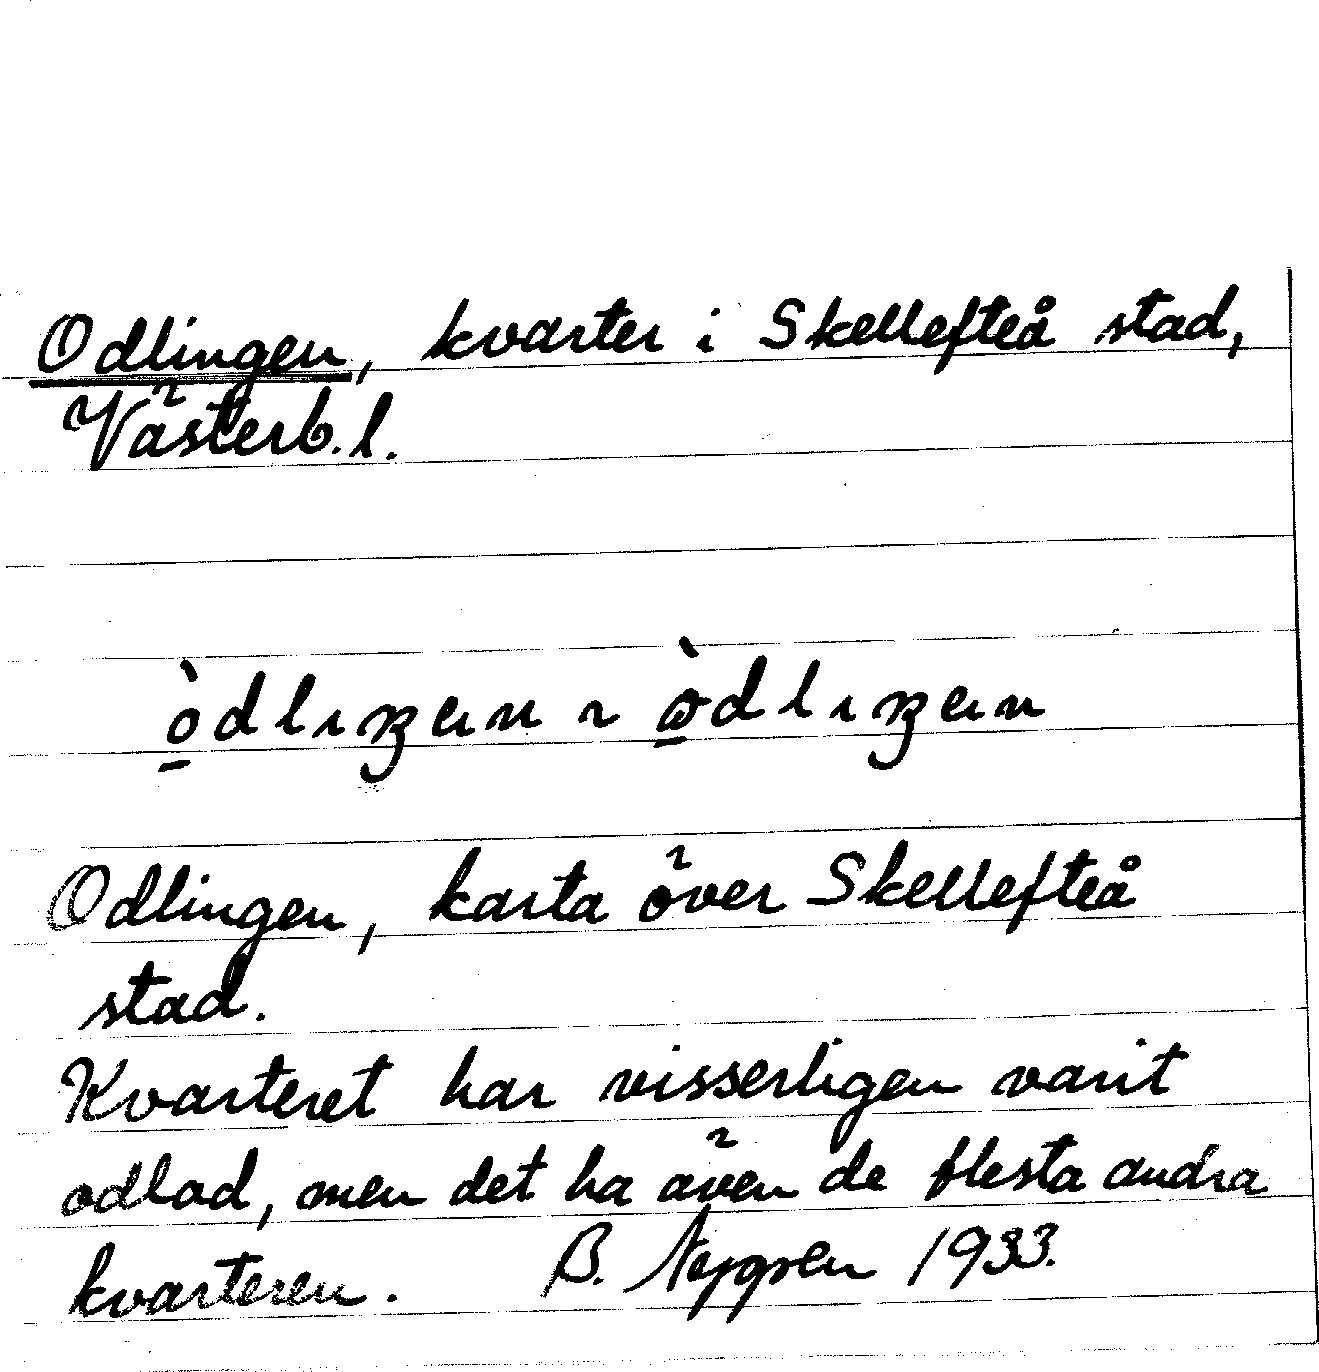 Odlingen, kvarter i Skellefteå stad,
Västerb. l.
Odlingen, karta över Skellefteå
stad.
Kvarteret har visserligen varit
odlad, men det ha även de flesta andra
kvarteren. B. 1933.